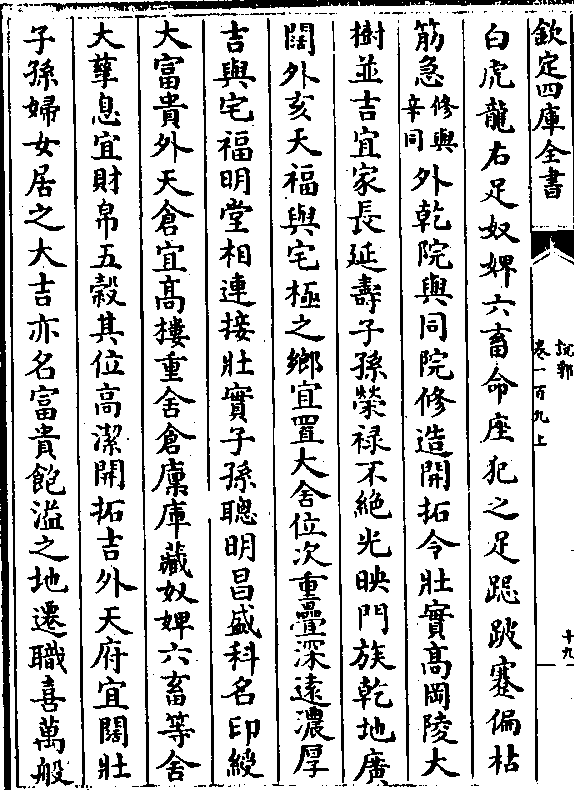 欽定四庫全書
說郛
卷一百九上
十九
白虎龍右足奴婢六畜命座犯之足跽跛蹇偏枯
筋急修與辛同外乾院與同院修造開拓令壯實高岡陵大
樹並吉宜家長延壽子孫榮祿不絕光映門族乾地廣
闊外亥天福與宅極之鄉宜置大舍位次重疊深遠濃厚
吉與宅福明堂相連接壯實子孫聰明昌盛科名印綬
大富貴外天倉宜高樓重舍倉廩庫藏奴婢六畜等舍
大孳息宜財帛五穀其位高潔開拓吉外天府宜闊壯
子孫婦女居之大吉亦名富貴飽溢之地遷職喜萬般